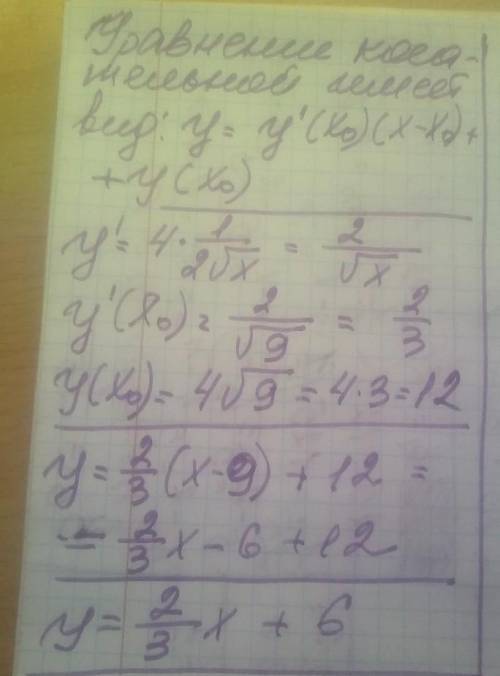 Уравнение каса-
тельной имеет
вид: y = y'(x₀)(x-x₀)+
+y(x₀)
y' = 4 · 1/(2√x) = 2/√x
y'(x₀) = 2/√9 = 2/3
y(x₀) = 4√9 = 4·3 = 12
y = 2/3 (x-9) + 12 =
= 2/3 x - 6 + 12
y = 2/3 x + 6